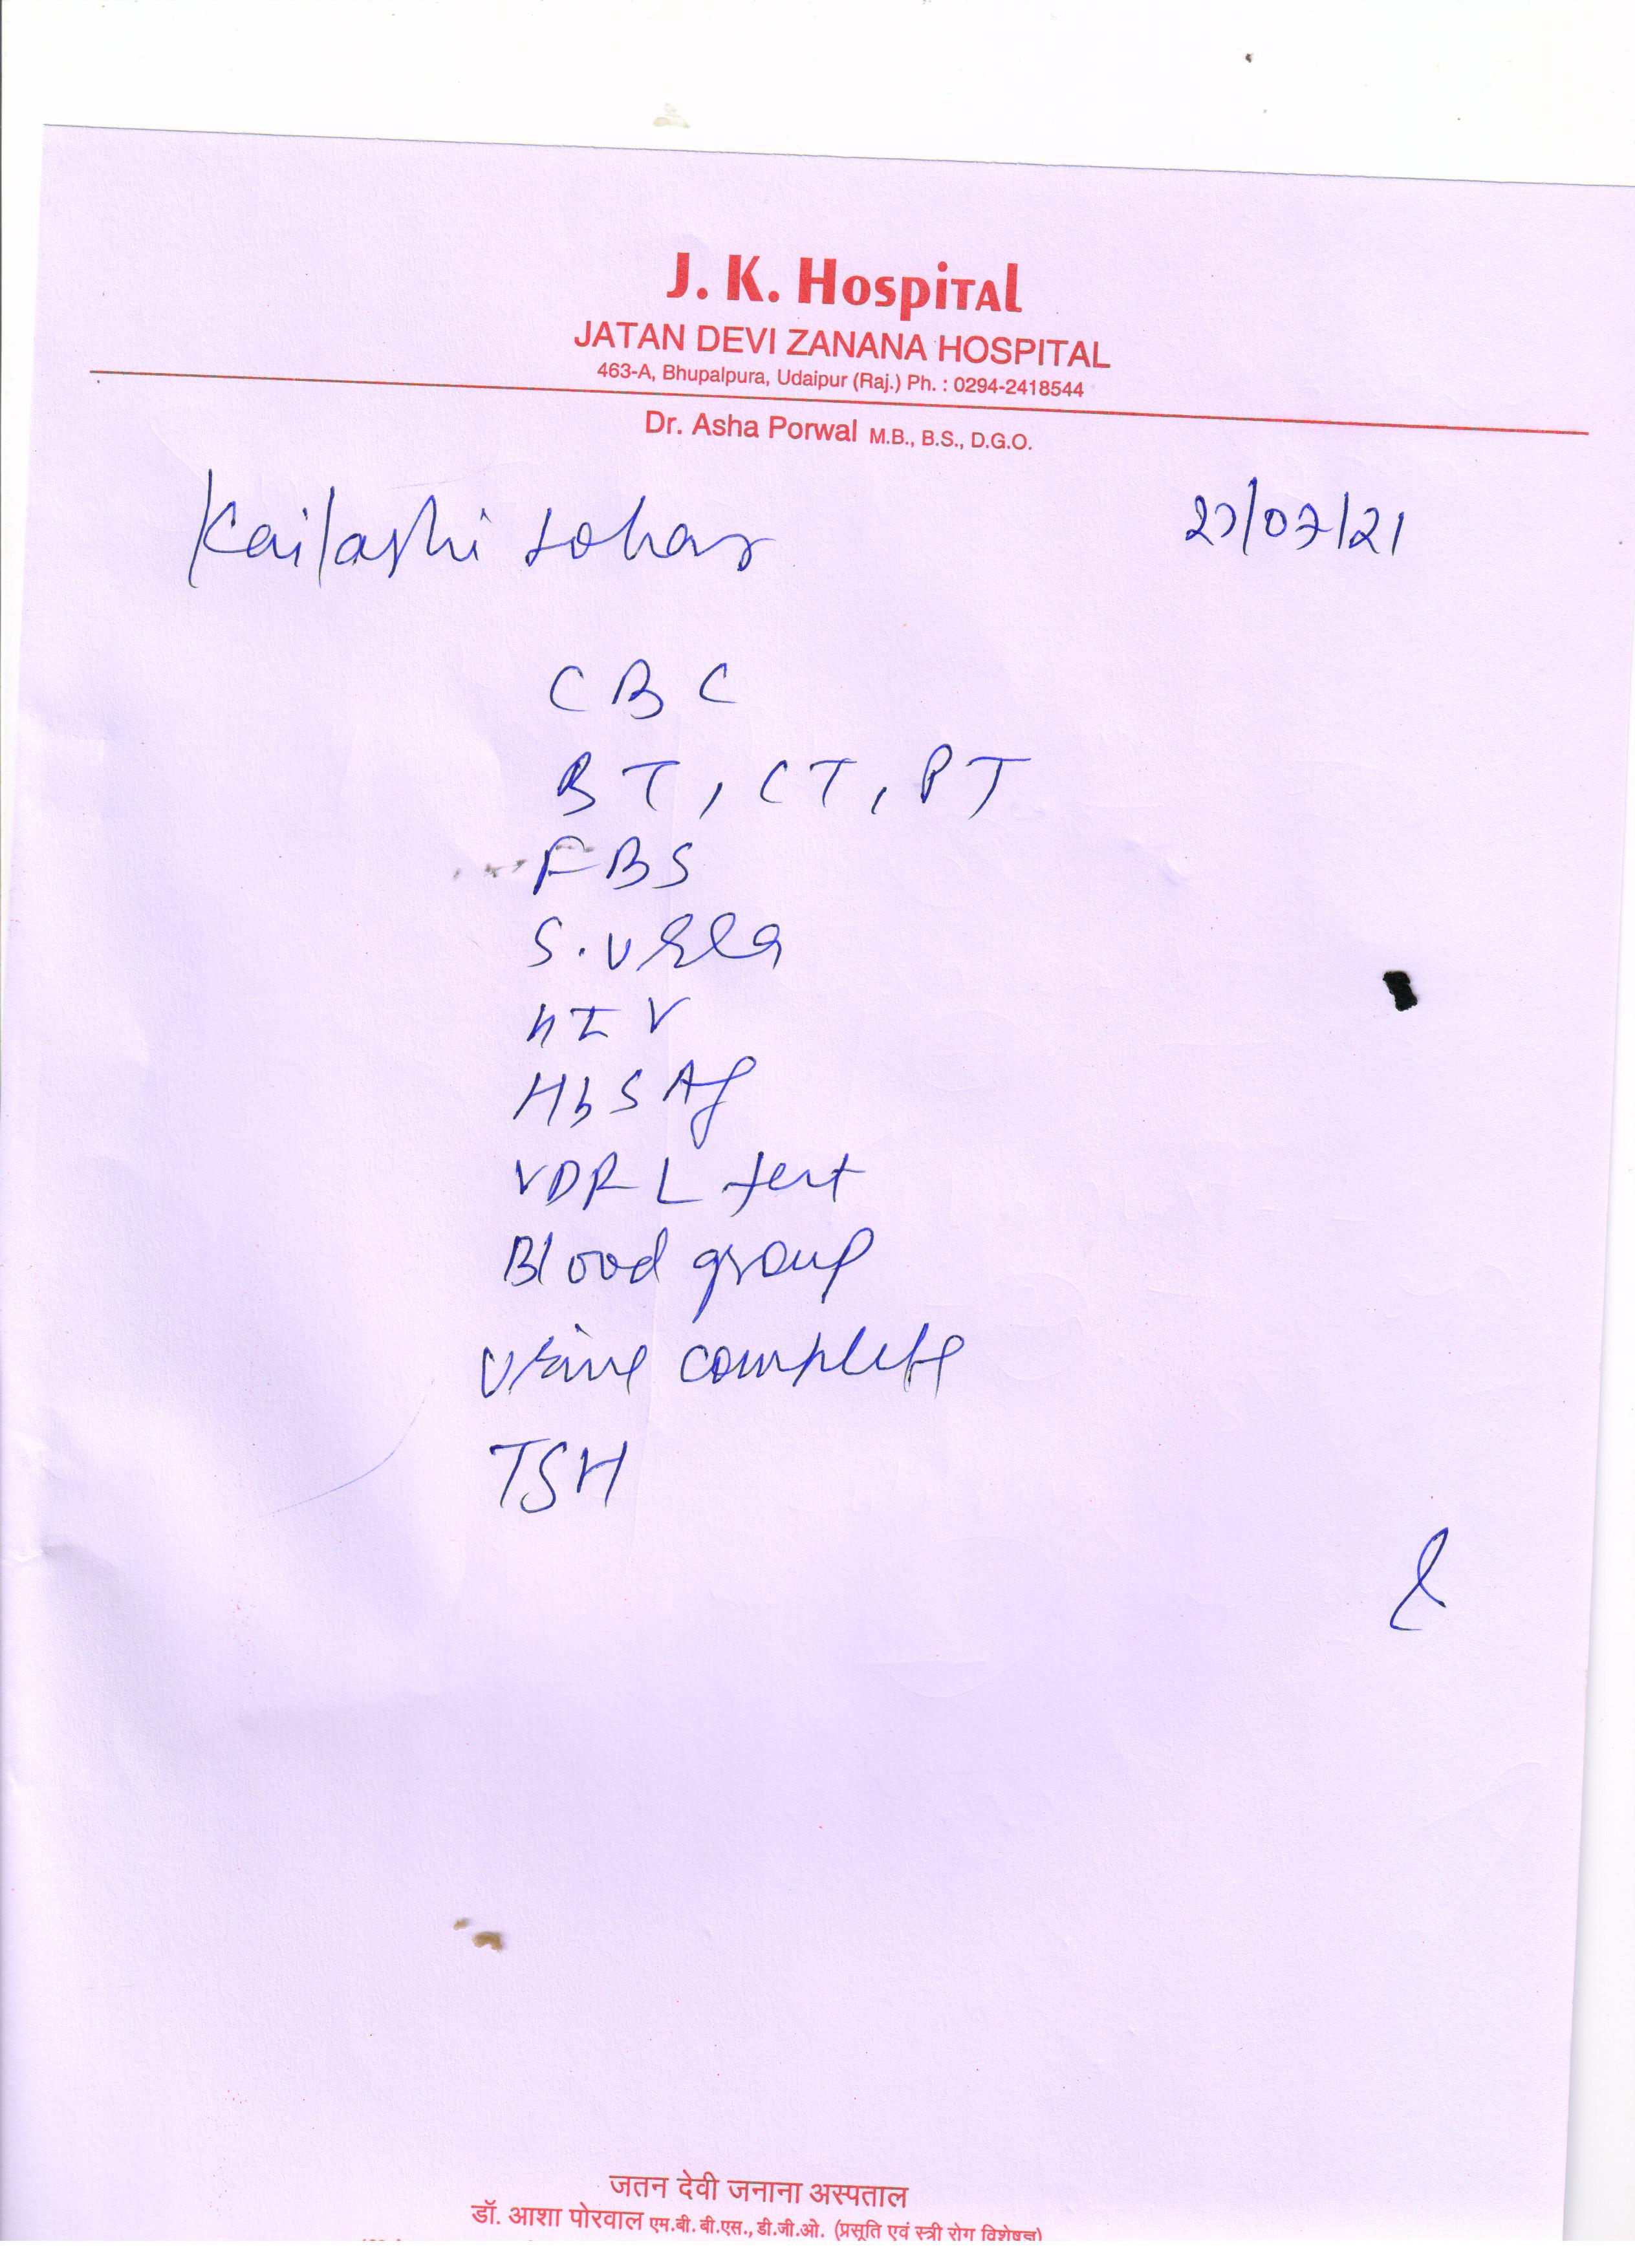 J. K. Hospital
JATAN DEVI ZANANA HOSPITAL
463-A, Bhupalpura, Udaipur (Raj.) Ph. : 0294-2418544
Dr. Asha Porwal M.B., B.S., D.G.O.
Kailashi Lohar 27/07/21
CBC
BT, CT, PT
FBS
S. Urea
HIV
HbSAg
VDRL test
Blood group
Urine complete
TSH
जतन देवी जनाना अस्पताल
डॉ. आशा पोरवाल एम.बी. बी.एस., डी.जी.ओ. (प्रसूति एवं स्त्री रोग विशेषज्ञ)